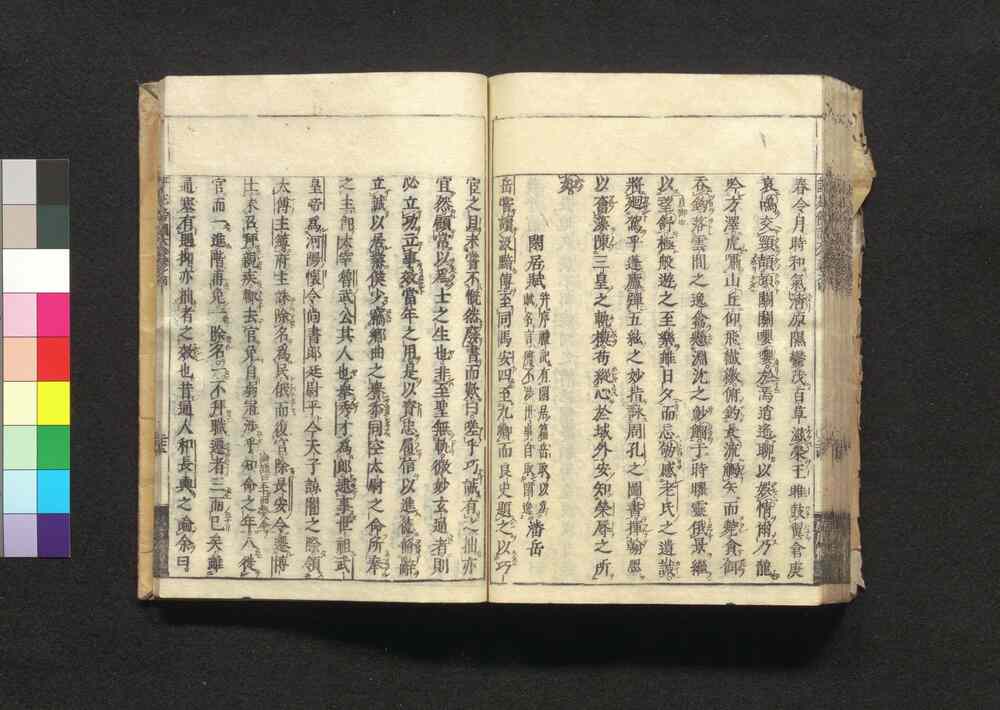 春令月時和氣清原隰鬱茂百草滋榮王雎鼓翼倉庚
哀鳴交頸頡頏關關嚶嚶於焉逍遙聊以娛情爾乃龍
吟方澤虎嘯山丘仰飛纖繳俯釣長流觸矢而斃貪餌
吞鈎落雲間之逸禽懸淵沈之魦鰡于時曜靈俄景繼
以望舒極般遊之至樂雖日夕而忘劬感老氏之遺誡
將廻駕乎蓬廬彈五絃之妙指詠周孔之圖書揮翰墨
以奮藻陳三皇之軌模苟縱心於域外安知榮辱之所
如
閑居賦 潘岳
岳嘗讀汲黯傳至司馬安四至九卿而良史題之以巧
宦之目未嘗不慨然廢書而歎曰嗟乎巧誠有之拙亦
宜然顧常以爲士之生也非至聖無軌微妙玄通者則
必立功立事效當年之用是以資忠履信以進德脩辭
立誠以居業僕少竊鄉曲之譽忝司空太尉之命所奉
之主卽太宰魯武公其人也擧秀才爲郎逮事世祖武
皇帝爲河陽懷令尚書郎廷尉平今天子諒闇之際領
太傅主簿府主誅除名爲民俄而復官除長安令遷博
士未召拜親疾輒去官免自弱冠涉乎知命之年八徙
官而一進階再免一除名一不拜職遷者三而已矣雖
通塞有遇抑亦拙者之效也昔通人和長輿之論余曰